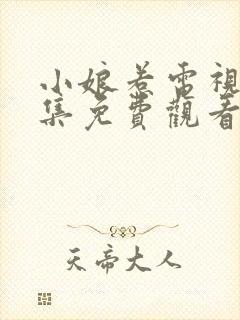 小娘若電視
集免費觀看
天帝大人